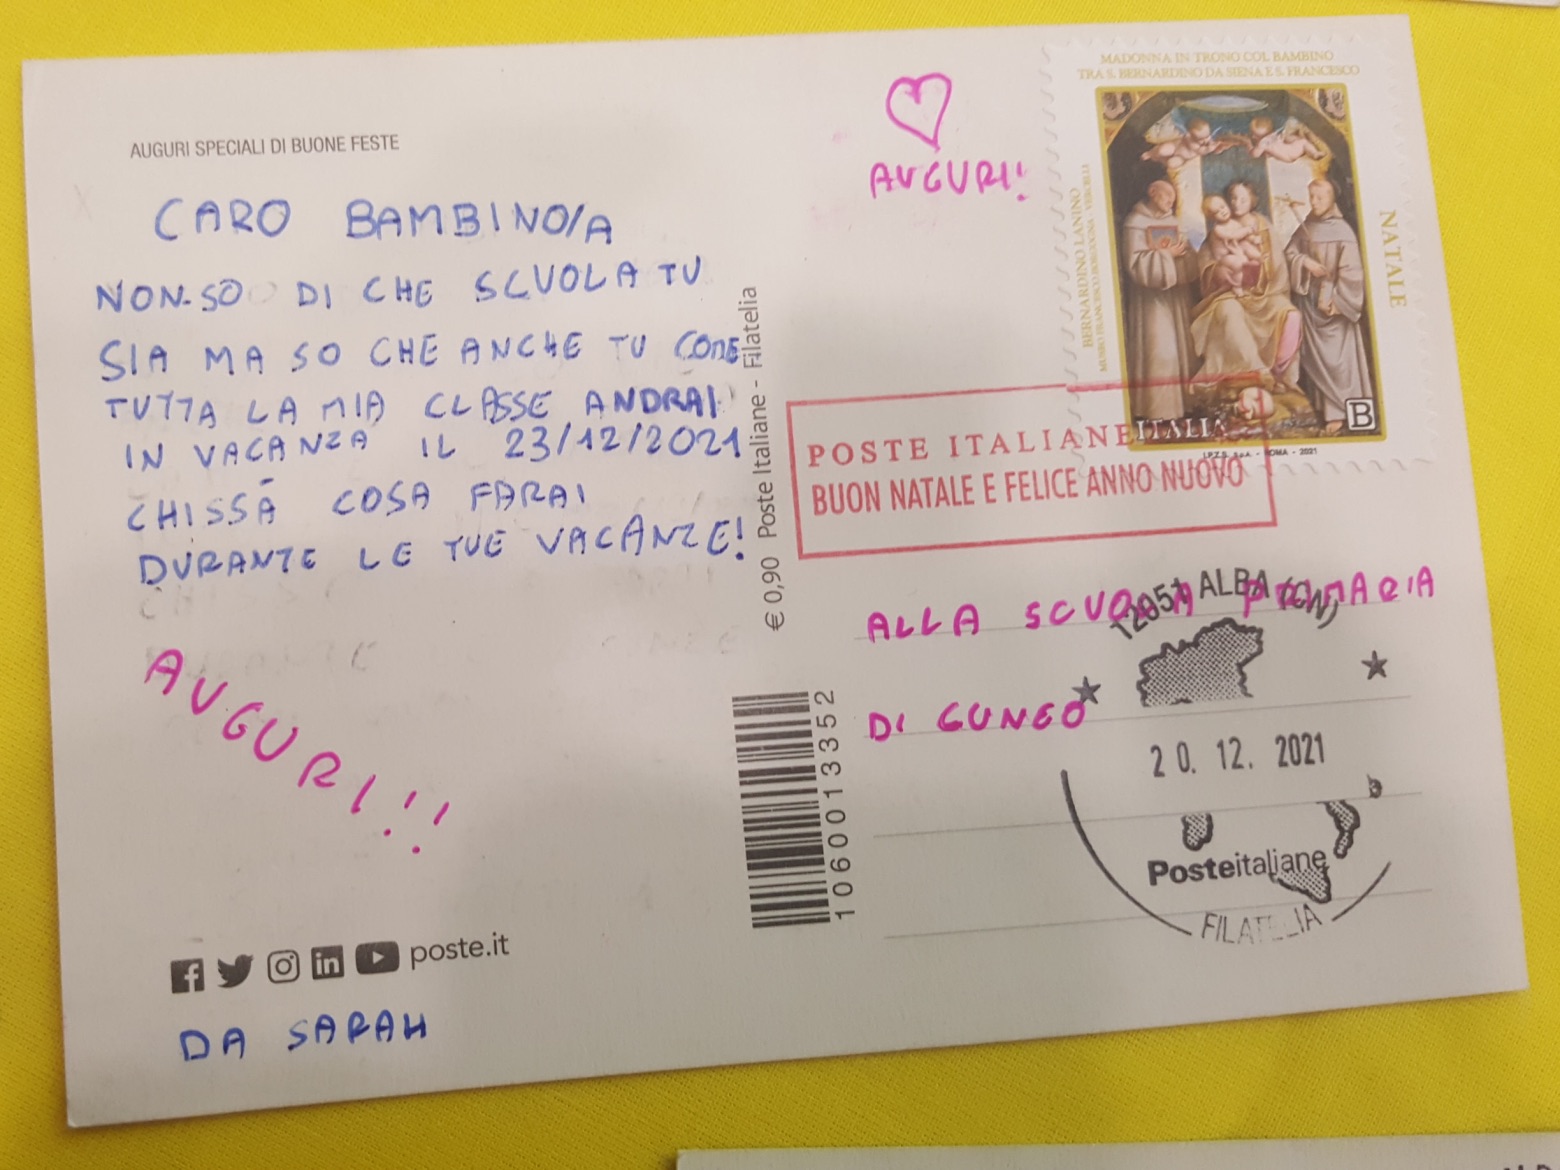 AUGURI SPECIALI DI BUONE FESTE
CARO BAMBINO/A
NON SO DI CHE SCUOLA TU
SIA MA SO CHE ANCHE TU COME
TUTTA LA MIA CLASSE ANDRAI
IN VACANZA IL 23/12/2021
CHISSÀ COSA FARAI
DURANTE LE TUE VACANZE!
AUGURI!!
poste.it
DA SARAH
€ 0,90 Poste Italiane - Filatelia
1060013352
AUGURI!
MADONNA IN TRONO COL BAMBINO
TRA S. BERNARDINO DA SIENA E S. FRANCESCO
BERNARDINO LANINO
MUSEO FRANCESCO BORGOGNA - VERCELLI
NATALE
ITALIA
B
I.P.Z.S. S.p.A. - ROMA - 2021
POSTE ITALIANE
BUON NATALE E FELICE ANNO NUOVO
ALLA SCUOLA PRIMARIA
DI CUNEO
12051 ALBA (CN)
20. 12. 2021
Posteitaliane
FILATELIA